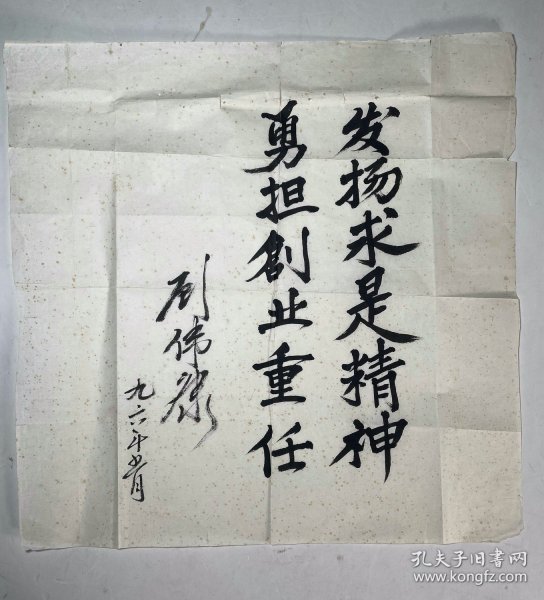 发扬求是精神
勇担創业重任
刘伟
九六年 月
孔夫子旧书网
www.kongfz.com